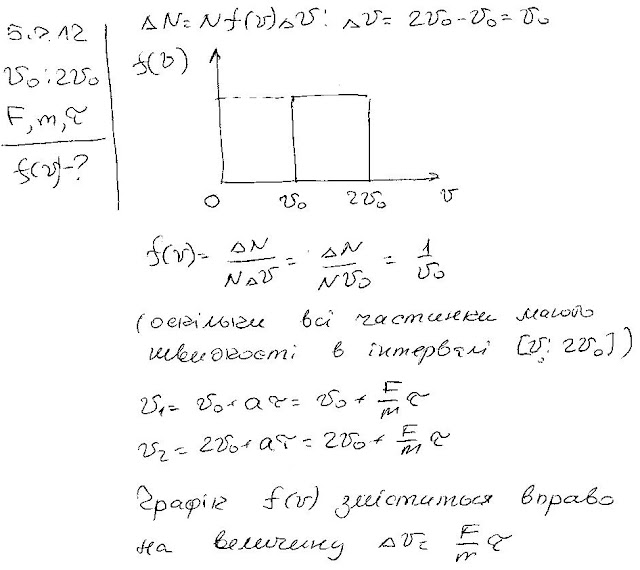 5.2.12
v₀; 2v₀
F, m, τ
f(v)-?
ΔN = N f(v) Δv; Δv = 2v₀ - v₀ = v₀
f(v)
0 v₀ 2v₀ v
f(v) = ΔN/(NΔv) = ΔN/(Nv₀) = 1/v₀
(оскільки всі частинки мають
швидкості в інтервалі [v; 2v₀])
v₁ = v₀ + aτ = v₀ + F/m τ
v₂ = 2v₀ + aτ = 2v₀ + F/m τ
Графік f(v) зміститься вправо
на величину Δv = F/m τ